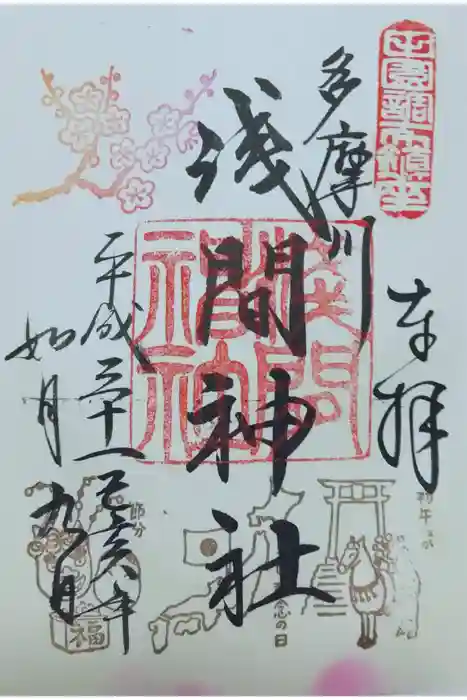 田園調布鎮座
奉拝
多摩川
浅間神社
淺間
神社
平成三十一己亥年
如月九日
初午
念の日
節分
福